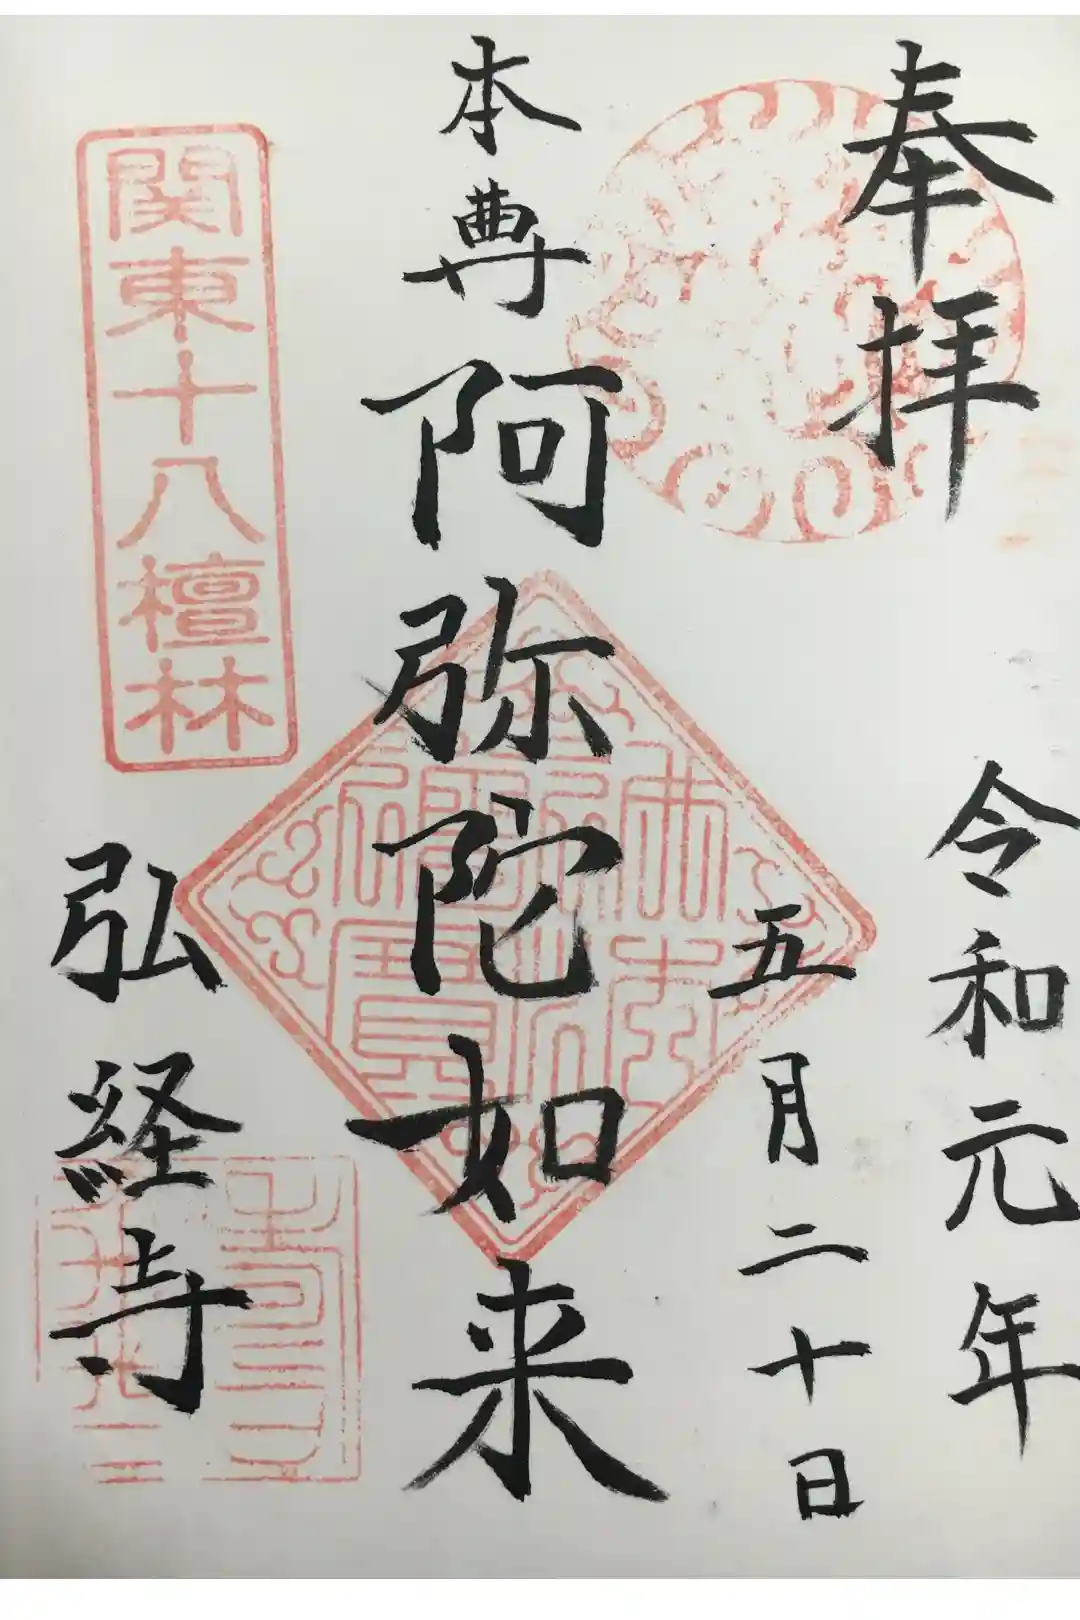 奉拝
令和元年
五月二十日
本尊 阿弥陀如来
関東十八檀林
弘経寺